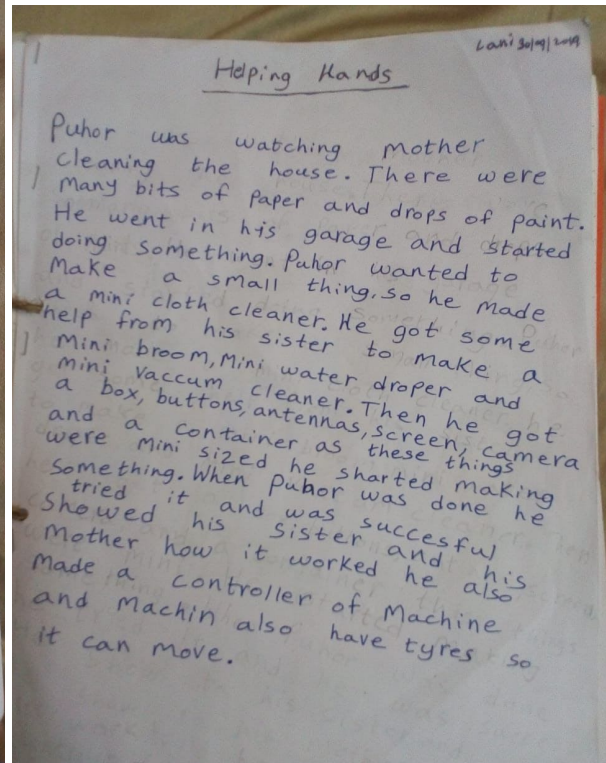 Lani 30/09/2019
Helping Hands
Puhor was watching mother
cleaning the house. There were
many bits of paper and drops of paint.
He went in his garage and started
doing something. Puhor wanted to
make a small thing, so he made
a mini cloth cleaner. He got some
help from his sister to make a
mini broom, mini water droper and
mini vaccum cleaner. Then he got
a box, buttons, antennas, screen, camera
and a container as these things
were mini sized he sharted making
something. When Puhor was done he
tried it and was succesful
Showed his sister and his
mother how it worked he also
made a controller of machine
and machin also have tyres so
it can move.